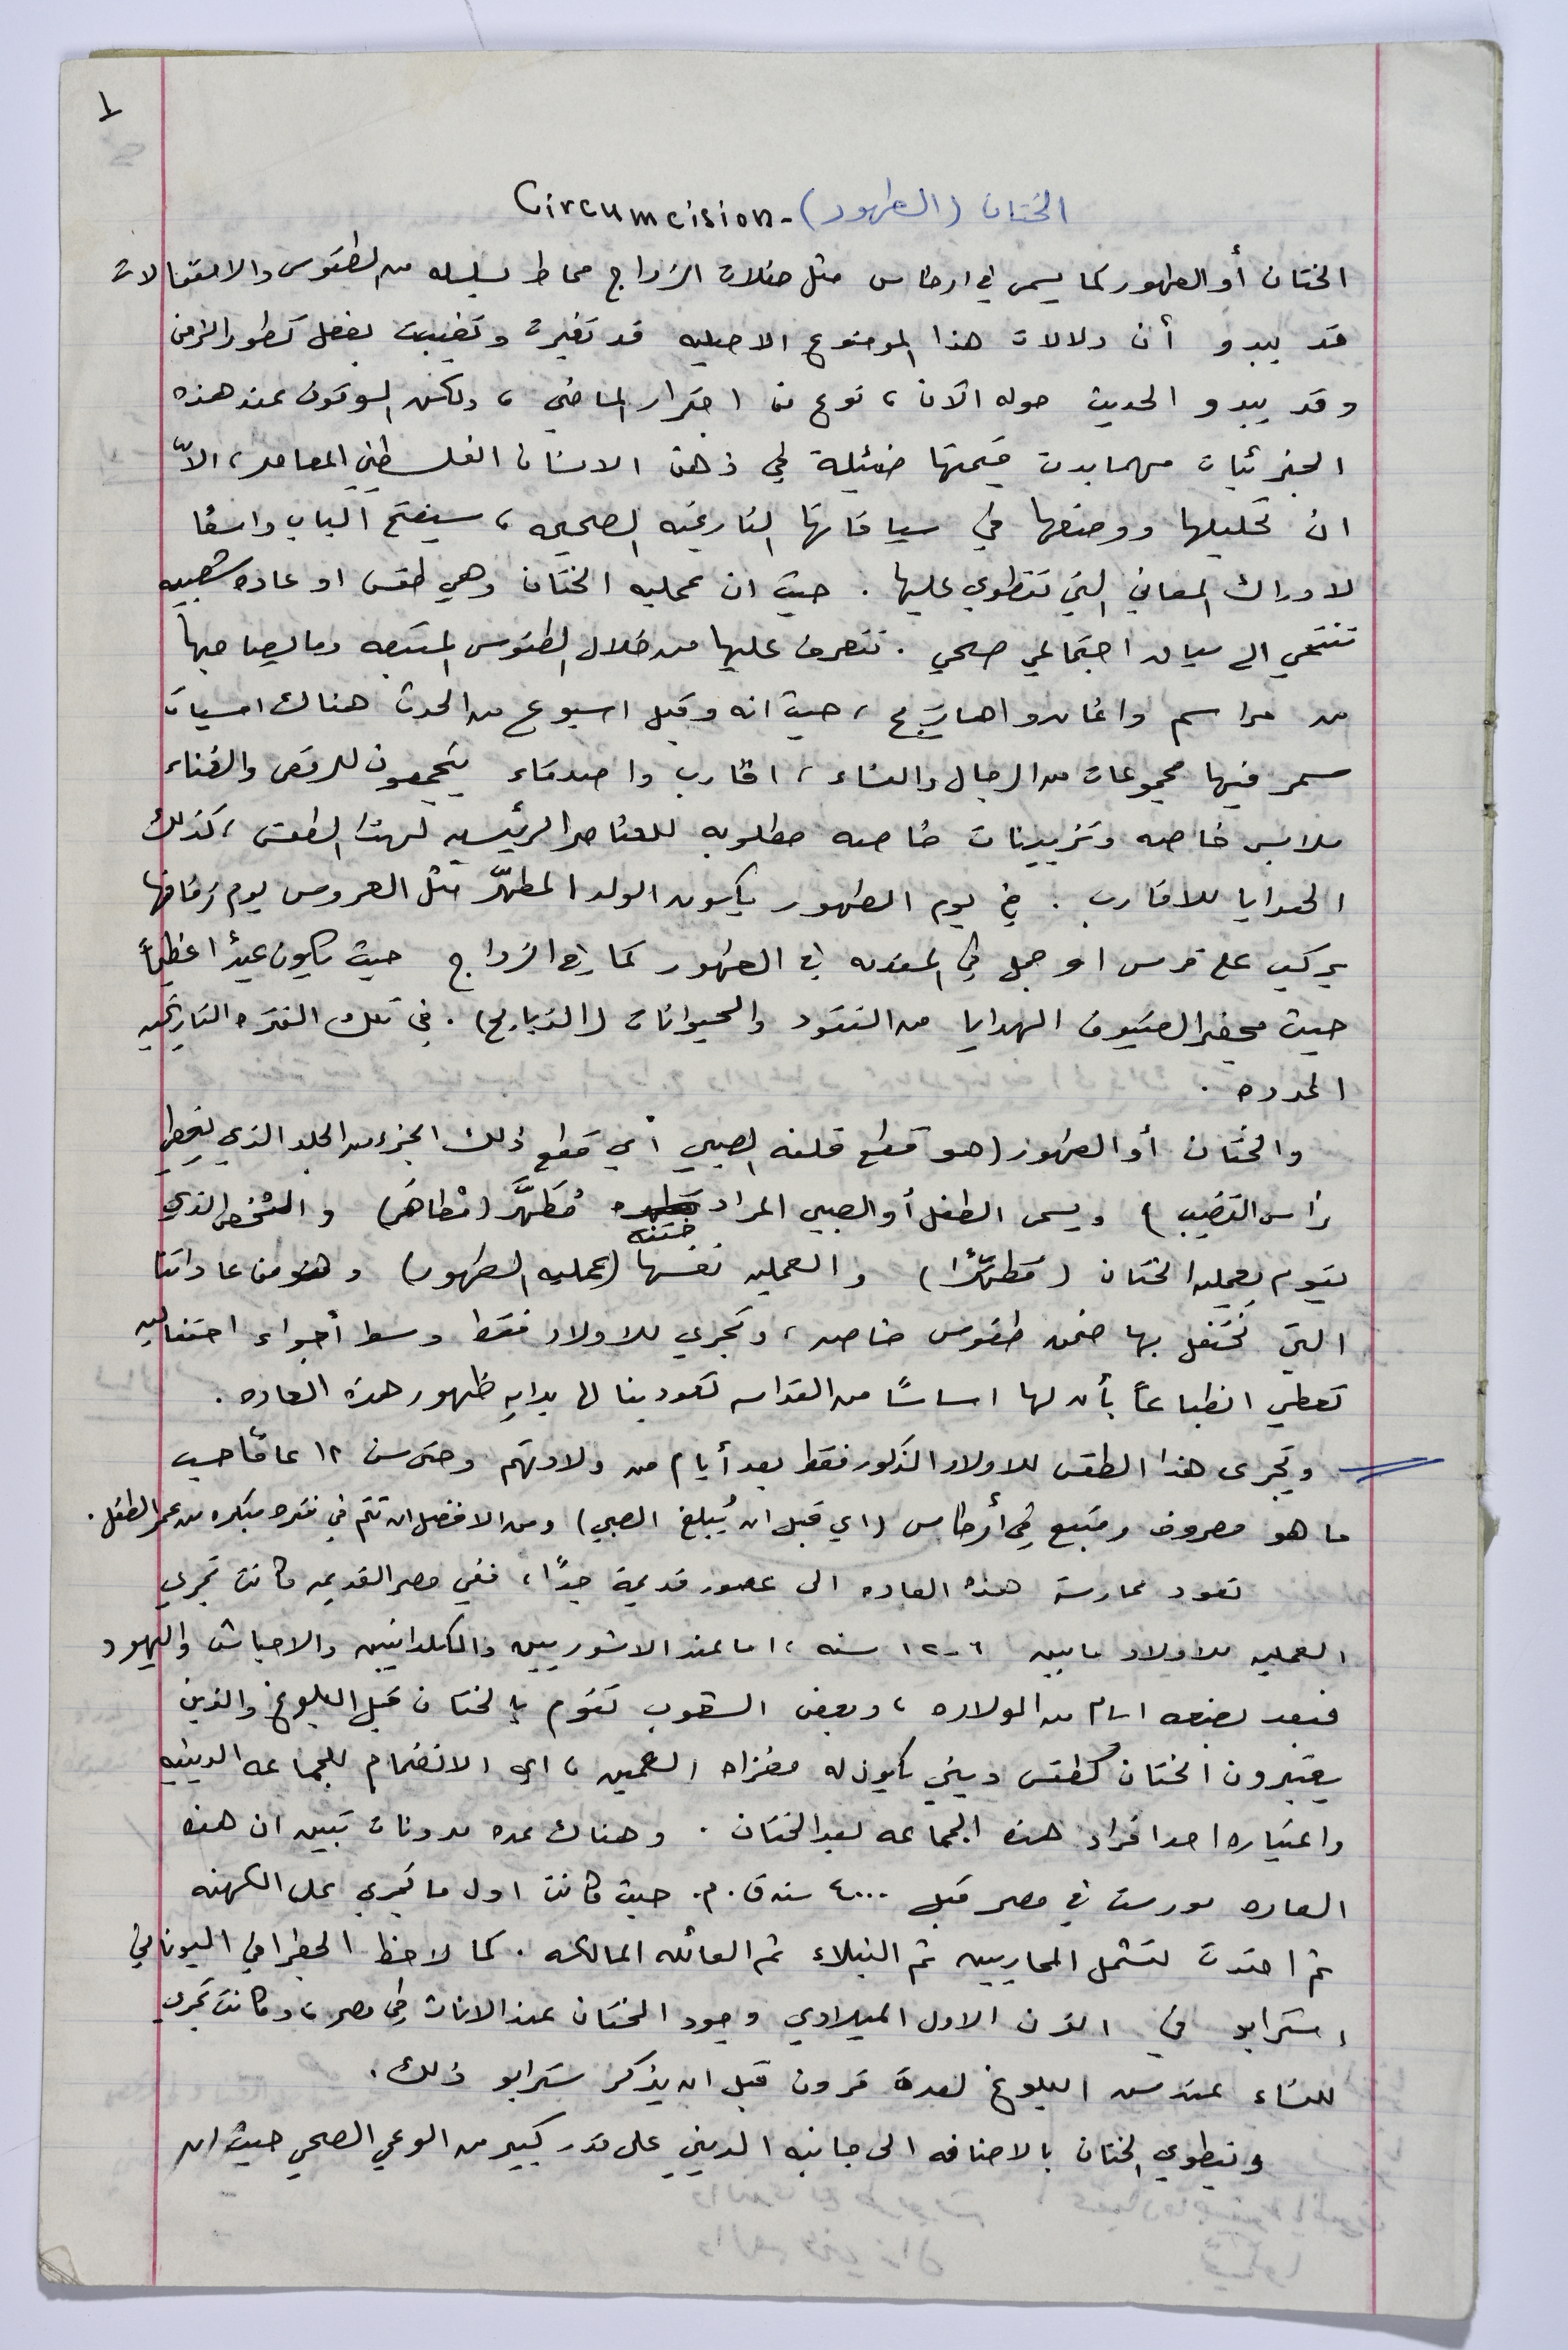 ١
الختان (الطهور) - Circumcision
الختان أو الطهور كما يسمى في ارطاس مثل حفلات الزواج محاط بسلسله من الطقوس والاحتفالات
قد يبدو أن دلالات هذا الموضوع الاصليه قد تغيرت وتغيبت بفعل تطور الزمن
وقد يبدو الحديث حوله الآن، نوع من اجترار الماضي، ولكن السكون عند هذه
الجزئيات مهما بدت قيمتها ضئيلة في ذهن الانسان الفلسطيني المعاصر، الاّ
ان تحليلها ووضعها في سياقاتها التاريخيه الصحيحه، سيفتح الباب واسعًا
لادراك المعاني التي تنطوي عليها. حيث ان عمليه الختان وهي طقس او عاده شعبيه
تنتمي الى ميدان اجتماعي صحي. نتعرف عليها من خلال الطقوس المتبعه وما يصاحبها
من مراسم واغاني واهازيج، حيث انه وقبل اسبوع من الحدث هناك امسيات
سمر فيها مجموعات من الرجال والنساء، اقارب واصدقاء يتجمعون للرقص والغناء
ملابس خاصه وتزيينات خاصه مطلوبه للعناصر الرئيسيه لهذا الطقس، كذلك
الهدايا للاقارب. في يوم الطهور يكون الولد المطهَّر مثل العروس يوم زفافها
يركب على فرس او جمل في المقدمه في الطهور كما في الزواج حيث يكون عيدًا عظيماً
حيث يحضر الضيوف الهدايا من النقود والحيوانات (الذبايح). في تلك الفتره التاريخيه
المحدده.
والختان أو الطهور (هو قطع قلفه الصبي أي قطع ذلك الجزء من الجلد الذي يغطي
رأس القضيب) ويسمى الطفل أو الصبي المراد ختنه مُطَهَّر (مْطاهَر) والشخص الذي
يقوم بعمليه الختان (مطهّرًا) والعمليه نفسها (عمليه الطهور) وهو من عاداتنا
التي نحتفل بها ضمن طقوس خاصه، وتجري للاولاد فقط وسط أجواء احتفاليه
تعطي انطباعاً بأن لها اساسًا من القداسه تعود بنا الى بدايه ظهور هذه العاده.
ويجرى هذا الطقس للاولاد الذكور فقط بعد أيام من ولادتهم وحتى سن ١٢ عامًا حسب
ما هو معروف ومتبع في أرطاس (اي قبل ان يُبلغ الصبي) ومن الافضل ان تتم في فتره مبكره من عمر الطفل.
تعود ممارسة هذه العاده الى عصور قديمة جدًا، ففي مصر القديمه كانت تجري
العمليه للاولاد ما بين ٦-١٢ سنه، اما عند الاشوريين والكلدانيين والاحباش واليهود
فبعد بضعه ايام من الولاده، وبعض الشعوب تقوم بالختان قبل البلوغ والذين
يعتبرون الختان كطقس ديني يكون له مغزاه العميق، اي الانضمام للجماعه الدينيه
واعتباره احد افراد هذه الجماعه بعد الختان. وهناك عده مدونات تبين ان هذه
العاده مورست في مصر قبل ٤٠٠٠ سنه ق.م. حيث كانت اول ما تجري على الكهنه
ثم امتدت لتشمل المحاربين ثم النبلاء ثم العائله المالكه. كما لاحظ الجغرافي اليوناني
استرابو في القرن الاول الميلادي وجود الختان عند الاناث في مصر، وكانت تجري
للنساء عند سن البلوغ لعدة قرون قبل ان يذكر سترابو ذلك.
وينطوي الختان بالاضافه الى جانبه الديني على قدر كبير من الوعي الصحي حيث ان